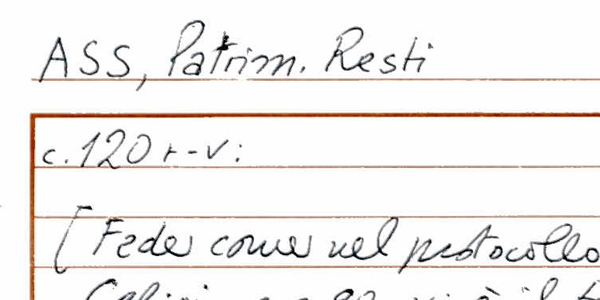 ASS, Patrim. Resti
c. 120 r-v:
[ Fede come nel protocollo